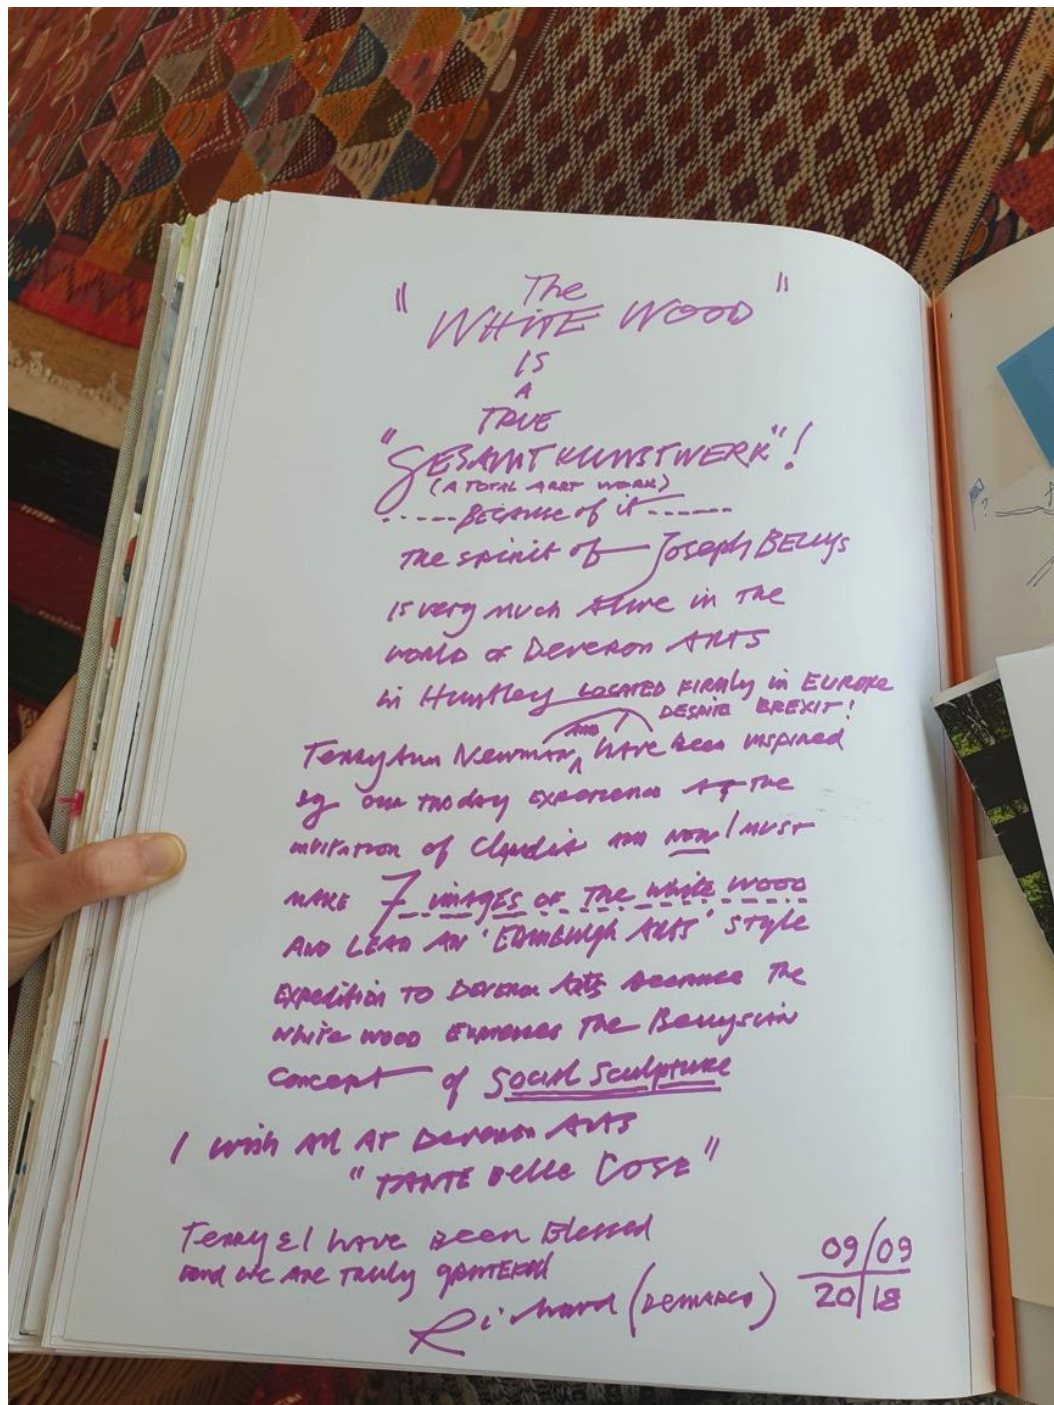 "The
WHITE WOOD"
IS
A
TRUE
"GESAMTKUNSTWERK"!
(A TOTAL ART WORK)
.....BECAUSE of it......
The spirit of Joseph BEUYS
is very much Alive in The
WORLD OF Deveron ARTS
in Huntley LOCATED FIRMLY in EUROPE
DESPITE BREXIT!
Terry Ann Newman AND I have been inspired
by our two day experience AT The
invitation of Claudia AND NOW I MUST
MAKE 7 images OF The White WOOD
AND LEAD AN 'EDINBURGH ARTS' STYLE
Expedition TO Deveron Arts because The
White WOOD Expresses The Beuysian
Concept of Social Sculpture
I wish All AT Deveron Arts
"TANTE Belle COSE"
Terry & I have Been Blessed
and we Are Truly
Richard (DEMARCO)
09/09
20/18
?